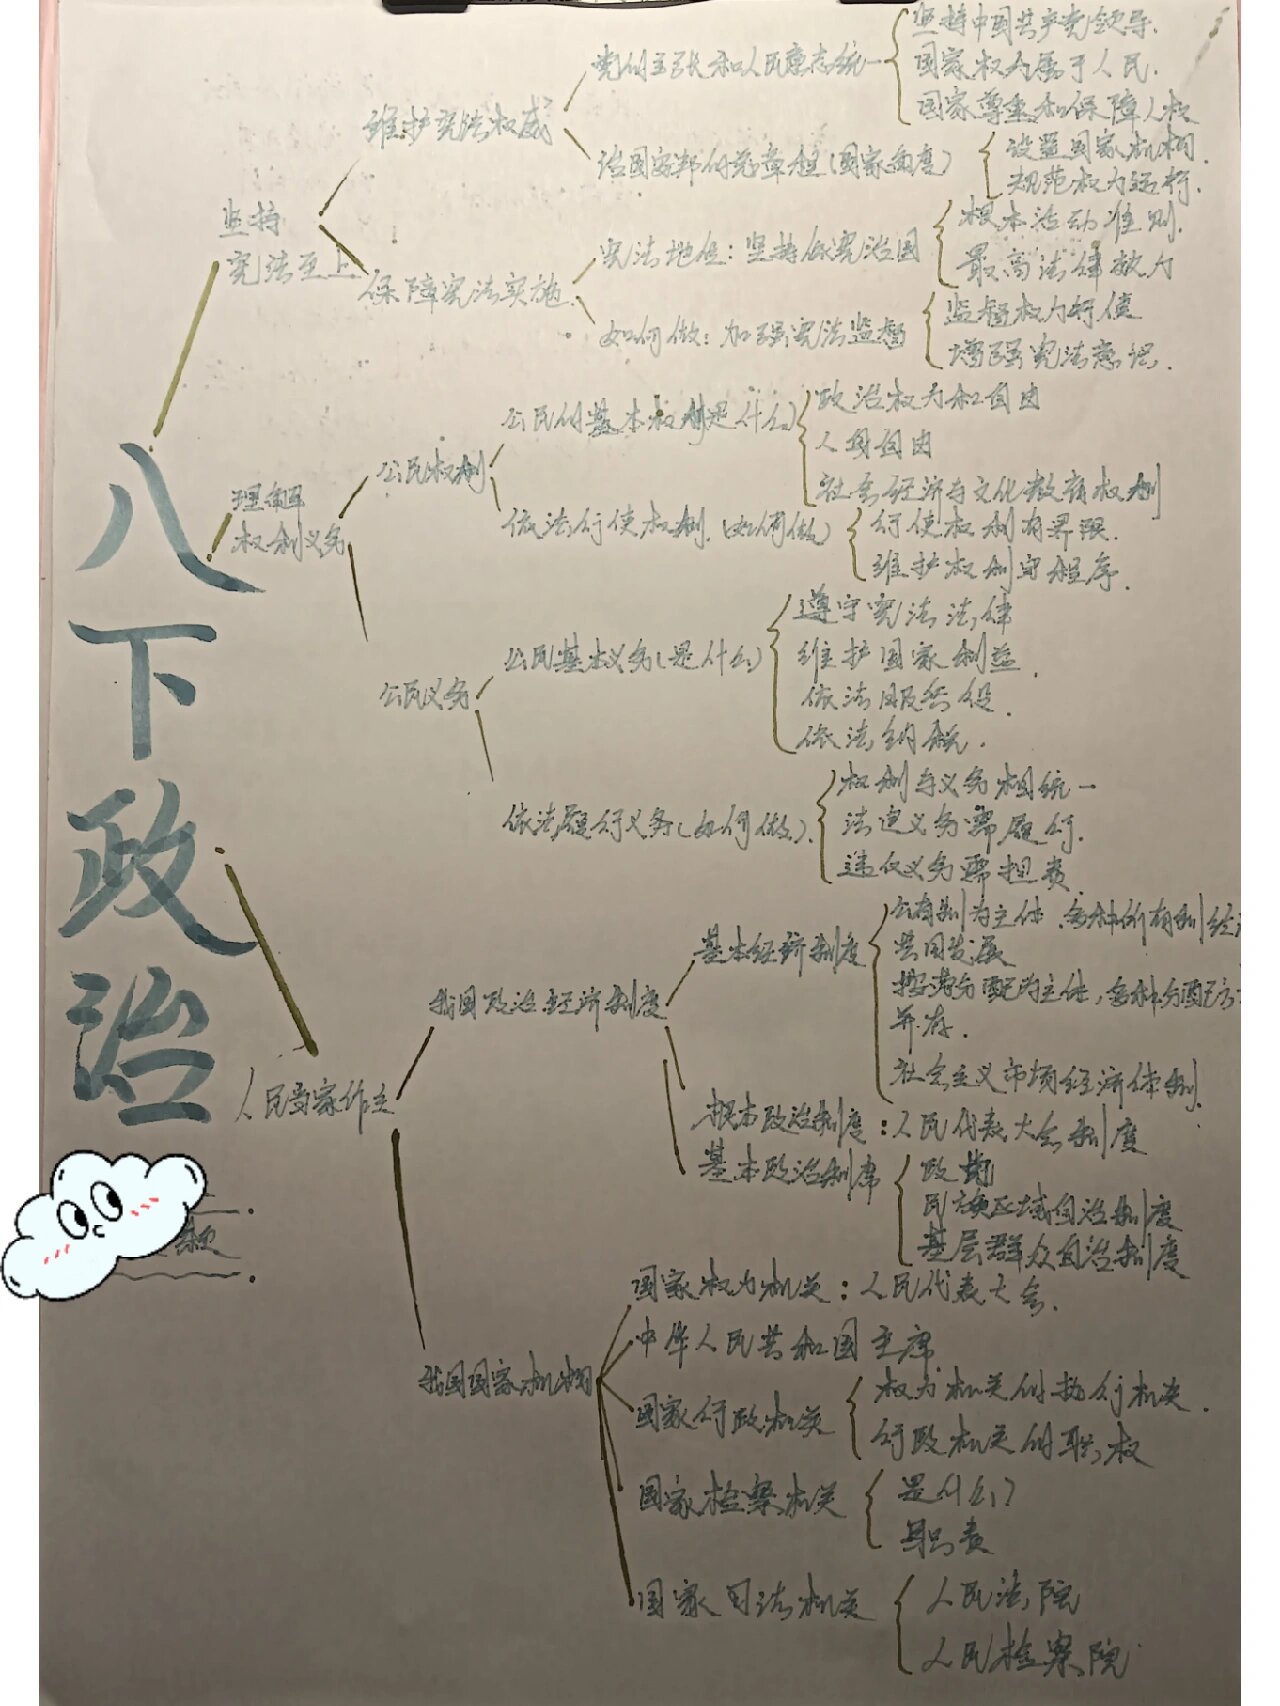 八下政治
坚持
宪法至上
维护宪法权威
党的主张和人民意志统一
坚持中国共产党领导.
国家权力属于人民.
国家尊重和保障人权
治国安邦的总章程(国家角度)
设置国家机构.
规范权力运行.
保障宪法实施.
宪法地位:坚持依宪治国
根本活动准则.
最高法律效力
如何做:加强宪法监督
监督权力行使
增强宪法意识.
理解
权利义务
公民权利
公民的基本权利(是什么)
政治权力和自由
人身自由
社会经济与文化教育权利
依法行使权利.(如何做)
行使权利有界限.
维护权利守程序.
公民义务
公民基本义务(是什么)
遵守宪法法律
维护国家利益.
依法服兵役.
依法纳税.
依法履行义务(如何做).
权利与义务相统一
法定义务需履行.
违反义务需担责.
人民当家作主
我国政治经济制度
基本经济制度
公有制为主体.多种所有制经
共同发展
按劳分配为主体,多种分配方
并存.
社会主义市场经济体制.
根本政治制度:人民代表大会制度
基本政治制度
民族区域自治制度
基层群众自治制度
我国国家机构
国家权力机关:人民代表大会.
中华人民共和国主席.
国家行政机关
权力机关的执行机关.
行政机关的职权
国家检察机关
是什么?
职责
国家司法机关
人民法院
人民检察院